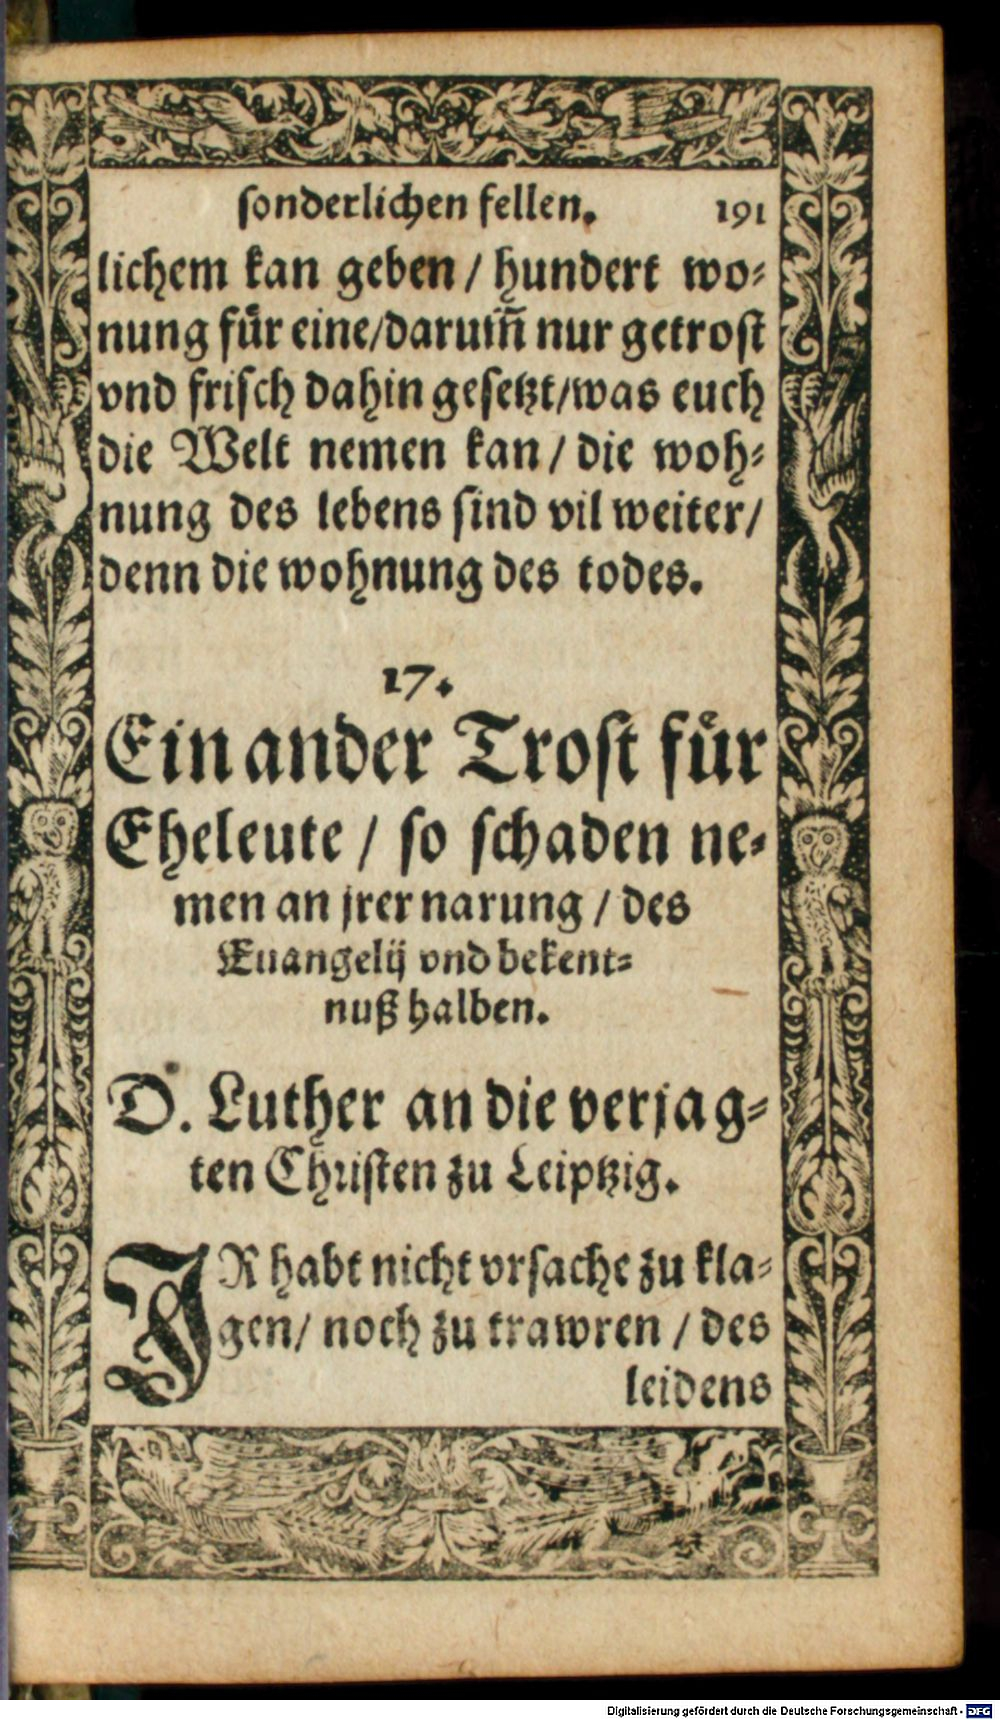 sonderlichen fellen. 191
lichem kan geben / hundert wo⸗
nung fuͤr eine/darum̃ nur getrost
vnd frisch dahin gesetzt/was euch
die Welt nemen kan / die woh⸗
nung des lebens sind vil weiter/
denn die wohnung des todes.
17.
Ein ander Trost fuͤr
Eheleute / so schaden ne⸗
men an jrer narung / des
Euangelij vnd bekent⸗
nuß halben.
D. Luther an die verjag⸗
ten Christen zu Leiptzig.
IR habt nicht vrsache zu kla⸗
gen/ noch zu trawren / des
leidens
Digitalisierung gefördert durch die Deutsche Forschungsgemeinschaft - DFG